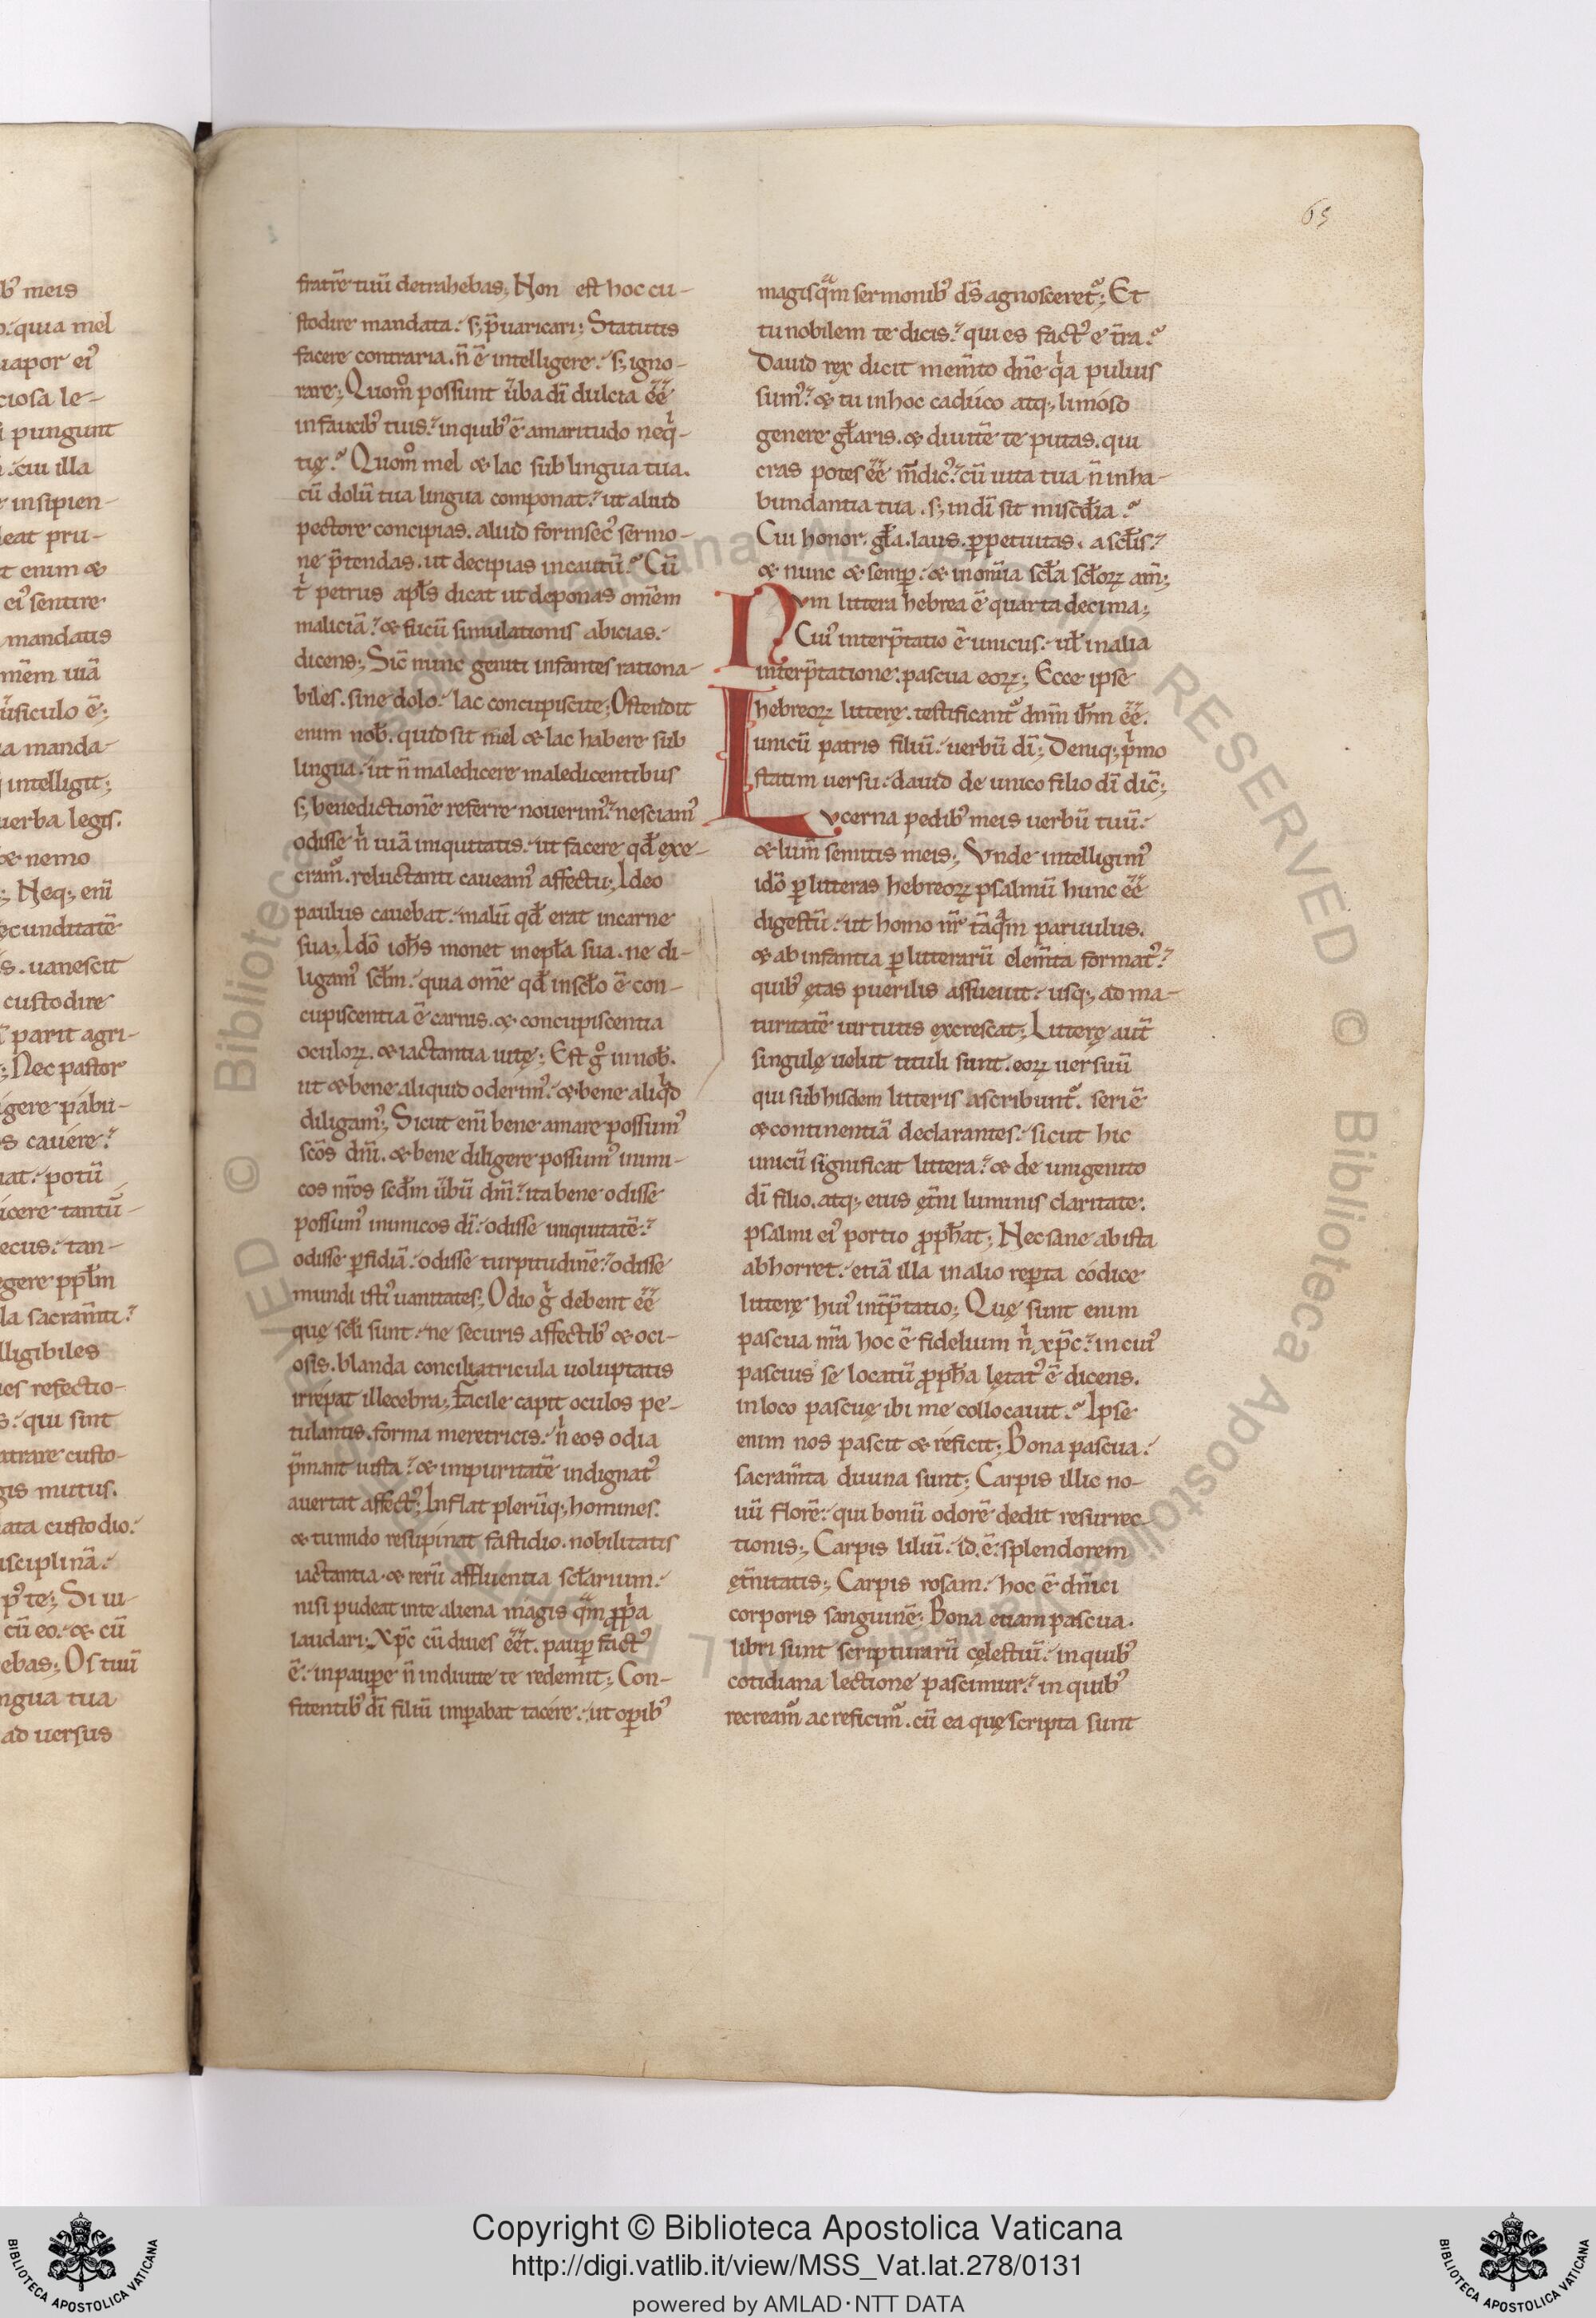 65
fratrē tuū detrahebas; Non est hoc cu-
stodire mandata. s; p̄uaricari; Statutis
facere contraria. n̄ ē intelligere. s; igno-
rare; Quom̊ possunt ūba dī dulcia ēē
in faucib; tuis? in quib; ē amaritudo neq̇-
tię? Quom̊ mel & lac sub lingua tua.
cū dolū tua lingua componat? ut aliud
pectore concipias. aliud forinsec̓ sermo-
ne p̄tendas. ut decipias incautū? Cū
t̓ petrus apl̄s dicat ut deponas om̄em
maliciā? & fucū simulationis abicias.
dicens; Sic̄ nunc geniti infantes rationa-
biles. sine dolo. lac concupiscite; Ostendit
enim nob̄. quid sit mel & lac habere sub
lingua. ut n̄ maledicere maledicentibus
s; benedictionē referre nouerim̓? nesciam̓
odisse n̓ uiā iniquitatis. ut facere qd̄ exe-
cram̓. reluctanti caueam̓ affectu; Ideo
paulus cauebat. malū qd̄ erat in carne
sua; Idō ioh̄s monet in epl̄a sua. ne di-
ligam̓ scl̄m. quia om̄e qd̄ in scl̄o ē con-
cupiscentia ē carnis. & concupiscentia
oculoꝝ. & iactantia uitę; Est g̊ in nob̄.
ut & bene aliquid oderim̓. & bene aliq̇d
diligam̓; Sicut enī bene amare possum̓
sc̄os dn̄i. & bene diligere possum̓ inimi-
cos nr̄os scd̄m ūbū dn̄i? ita bene odisse
possum̓ inimicos dī. odisse iniquitatē?
odisse ꝑfidiā. odisse turpitudinē? odisse
mundi isti̓ uanitates; Odio g̓ debent ēē
quę scl̄i sunt. ne securis affectib; & oci-
osis. blanda conciliatricula uoluptatis
irrepat illecebra; Facile capit oculos pe-
tulantis. forma meretricis. n̓ eos odia
p̄mant iusta? & impuritatē indignat̓
auertat affect̓; Inflat plerūq; homines.
& tumido resupinat fastidio. nobilitatis
iactantia. & rerū affluentia scl̄arium.
nisi pudeat in te aliena magis q̄m ꝓp̓a
laudari; Xp̄c cū diues ēēt. paup̄ fact̓
ē. in paupe n̄ in diuite te redemit; Con-
fitentib; dī filiū imꝑabat tacere. ut opib;
magis q̄m sermonib; d̄s agnosceret̓; Et
tu nobilem te dicis? qui es fact̓ e t̄ra?
Dauid rex dicit mem̄to dn̄e q̇a puluis
sum̓? & tu in hoc caduco atq; limoso
genere gl̄aris. & diuitē te putas. qui
cras potes ēē m̄dic̓? cū uita tua n̄ in ha-
bundantia tua. s; in dī sit misc̄dia?
Cui honor. gl̄a. laus. ꝑpetuitas. a scl̄is?
& nunc & semꝑ. & in om̄ia scl̄a scl̄oꝝ am̄;
Nvn littera hebrea ē quarta decima;
Cui̓ interp̄tatio ē unicus. ul̄ in alia
interp̄tatione. pascua eoꝝ; Ecce ipsę
hebreoꝝ litterę. testificant̓ dn̄m ih̄m ēē.
unicū patris filiū. uerbū dī; Deniq; p̓mo
statim uersu. dauid de unico filio dī dic̄;
Lvcerna pedib; meis uerbū tuū.
& lum̄ semitis meis; Vnde intelligim̓
idō ꝑ litteras hebreoꝝ psalmū hunc ēē
digestū. ut homo nr̄ tāq̄m paruulus.
& ab infantia ꝑ litterarū elem̄ta format̓?
quib; ętas puerilis assueuit. usq; ad ma-
turitatē uirtutis excrescat; Litterę aut̄
singulę uelut tituli sunt. eoꝝ uersuū
qui sub hisdem litteris ascribunt̓. seriē
& continentiā declarantes. sicut hic
unicū significat littera? & de unigenito
dī filio. atq; eius ęt̄ni luminis claritate.
psalmi ei̓ portio ꝓph̄at; Nec sane ab ista
abhorret. etiā illa in alio reꝑta codice
litterę hui̓ int̄p̄tatio; Quę sunt enim
pascua nr̄a hoc ē fidelium n̓ xp̄c? in cui̓
pascuis se locatū ꝓph̄a lętat̓ ē dicens.
in loco pascuę ibi me collocauit? Ipse
enim nos pascit & reficit; Bona pascua.
sacram̄ta diuina sunt; Carpis illic no-
uū florē. qui bonū odorē dedit resurrec-
tionis; Carpis liliū. id. ē. splendorem
ęt̄nitatis; Carpis rosam. hoc ē dn̄ici
corporis sanguinē; Bona etiam pascua.
libri sunt scripturarū cęlestiū. in quib;
cotidiana lectione pascimur? in quib;
recream̓ ac reficim̓. cū ea quę scripta sunt
Copyright © Biblioteca Apostolica Vaticana
http://digi.vatlib.it/view/MSS_Vat.lat.278/0131
powered by AMLAD·NTT DATA
BIBLIOTECA APOSTOLICA VATICANA
BIBLIOTECA APOSTOLICA VATICANA